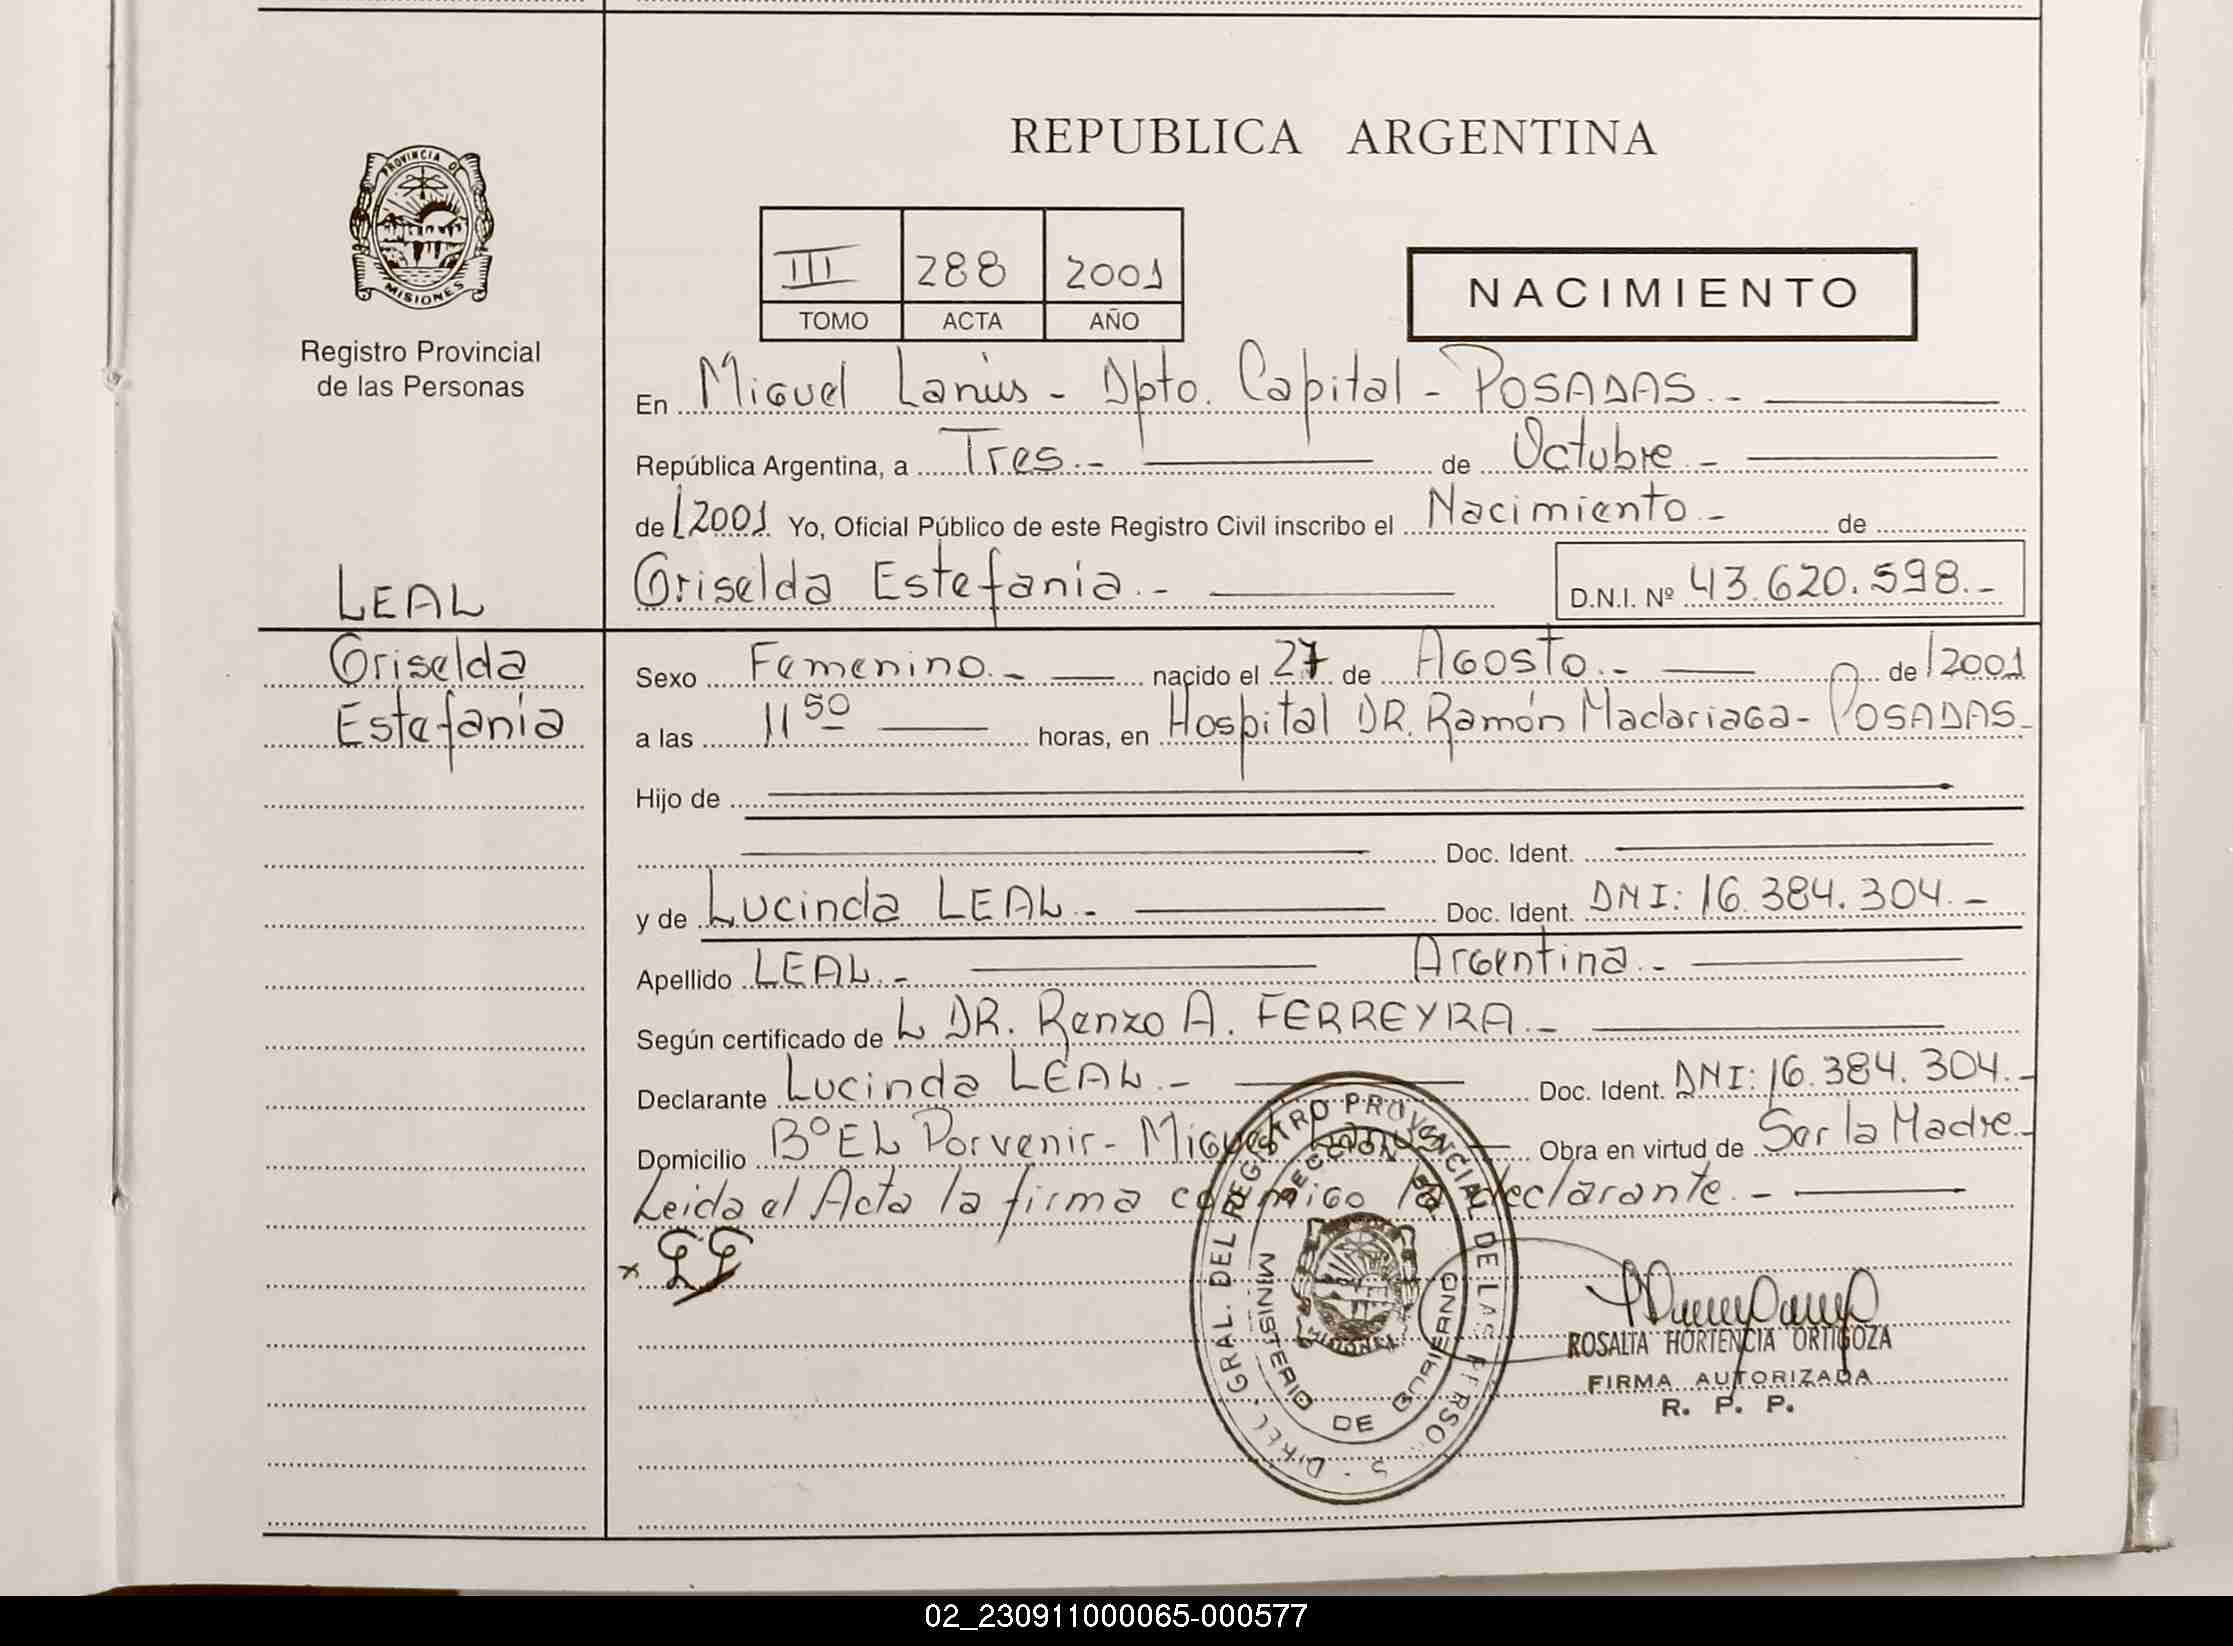 REPUBLICA ARGENTINA
PROVINCIA DE
MISIONES
Registro Provincial
de las Personas
III 288 2001
TOMO ACTA AÑO
NACIMIENTO
En Miguel Lanús - Dpto. Capital - POSADAS.-
República Argentina, a Tres.- de Octubre.-
de /2001 Yo, Oficial Público de este Registro Civil inscribo el Nacimiento.- de
Griselda Estefanía.- D.N.I. Nº 43.620.598.-
LEAL
Griselda
Estefanía
Sexo Femenino.- nacido el 27 de Agosto.- de /2001
a las 11 50 horas, en Hospital DR. Ramón Madariaga - POSADAS-
Hijo de
Doc. Ident.
y de Lucinda LEAL.- Doc. Ident. DNI: 16.384.304.-
Apellido LEAL.- Argentina.-
Según certificado de L DR. Renzo A. FERREYRA.-
Declarante Lucinda LEAL.- Doc. Ident. DNI: 16.384.304.-
Domicilio Bº EL Porvenir - Miguel Lanús - Obra en virtud de Ser la Madre.-
Leida el Acta la firma conmigo la declarante.-
x
GRAL. DEL REGISTRO PROVINCIAL DE LAS PERSO
MINISTERIO DE GOBIERNO
MISIONES
ROSALIA HORTENCIA ORTIGOZA
FIRMA AUTORIZADA
R. P. P.
02_230911000065-000577